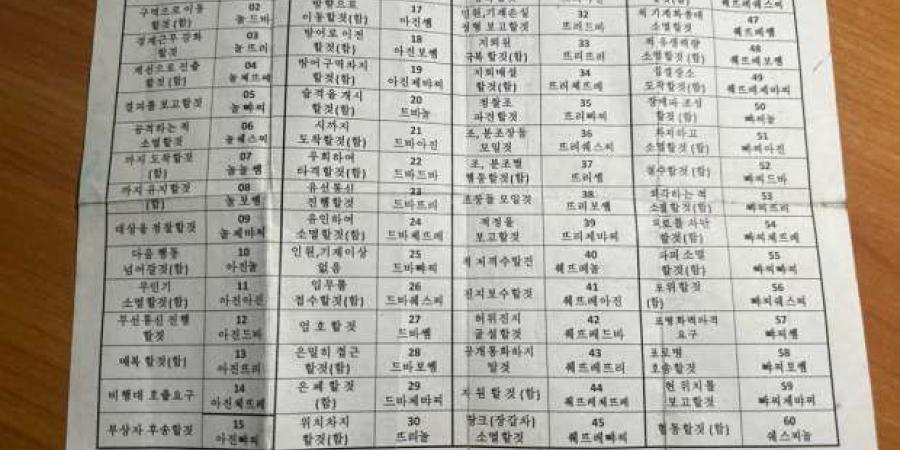 구역으로 이동
할것(함)
02
놀드바
방향으로
이동할것(함)
17
아진쎔
인원,기재손실
정형 보고할것
32
뜨리드바
소멸할것
47
체뜨레쎔
경계근무 강화
할것
03
놀뜨리
방어로 이전
할것(함)
18
아진보쎔
지뢰원
극복 할것(함)
33
뜨리뜨리
적 유생력량
소멸할것(함)
48
체뜨레보쎔
계선으로 진출
할것(함)
04
놀체뜨레
방어구역차지
할것(함)
19
아진제뱌찌
지뢰매설
할것(함)
34
뜨리체뜨레
집결장소
도착할것(함)
49
체뜨레제뱌찌
결과를 보고할것
05
놀빠찌
습격을 개시
할것(함)
20
드바놀
정찰조
파견할것
35
뜨리빠찌
장애파 조성
할것(함)
50
빠찌놀
공격하는 적
소멸할것
06
놀쉐스찌
시까지
도착할것(함)
21
드바아진
조, 분조장들
모일것
36
뜨리쉐스찌
소멸할것(함)
51
빠찌아진
까지 도착할것
(함)
07
놀놀쎔
우회하여
타격할것(함)
22
드바드바
조, 분조별
행동할것(함)
37
뜨리쎔
철수할것(함)
52
빠찌드바
까지 유지할것
(함)
08
놀보쎔
유선통신
진행할것
23
드바뜨리
조장들 모일것
38
뜨리보쎔
퇴각하는 적
소멸할것(함)
53
빠찌뜨리
대상을 정찰할것
09
놀제뱌찌
유인하여
소멸할것(함)
24
드바체뜨레
적정을
보고할것
39
뜨리제뱌찌
퇴로를 차단
할것(함)
54
빠찌체뜨레
다음 행동
넘어갈것(함)
10
아진놀
인원,기재이상
없음
25
드바빠찌
적저격수발견
40
체뜨레놀
파괴 소멸
할것(함)
55
빠찌빠찌
무인기
소멸할것(함)
11
아진아진
임무를
접수할것(함)
26
드바쉐스찌
진지보수할것
41
체뜨레아진
포위할것
(함)
56
빠찌쉐스찌
무선통신 진행
할것
12
아진드바
엄호할것
27
드바쎔
허위진지
굴설할것
42
체뜨레드바
포병화력타격
요구
57
빠찌쎔
매복 할것(함)
13
아진뜨리
은밀히 접근
할것(함)
28
드바보쎔
공개통화하지
말것
43
체뜨레뜨리
포로병
호송할것
58
빠찌보쎔
비행대 호출요구
14
아진체뜨레
은폐 할것
(함)
29
드바제뱌찌
지원할것(함)
44
체뜨레체뜨레
현 위치를
보고할것
59
빠찌제뱌찌
부상자 후송할것
15
아진빠찌
위치차지
할것(함)
30
뜨리놀
땅크(장갑차)
소멸할것
45
체뜨레빠찌
협동할것(함)
60
쉐스찌놀